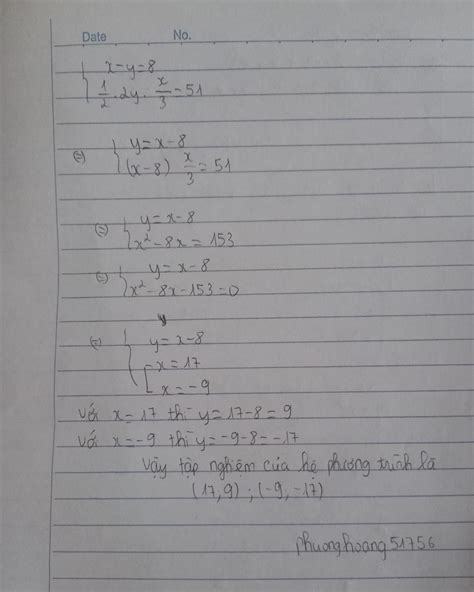 Date No.
{ x-y=8
{ 1/2 . 2y . x/3 = 51
(=) { y = x-8
{ (x-8) x/3 = 51
(=) { y = x-8
{ x² - 8x = 153
(=) { y = x-8
{ x² - 8x - 153 = 0
y
(=) { y = x-8
[ x = 17
[ x = -9
Với x = 17 thì y = 17-8 = 9
Với x = -9 thì y = -9-8 = -17
Vậy tập nghiệm của hệ phương trình là
(17,9) ; (-9,-17)
phuonghoang51756